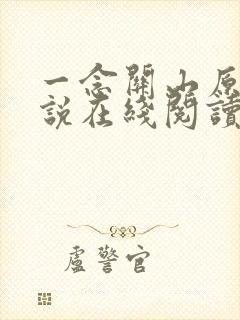 一念關山原
說在綫閱讀
盧警官